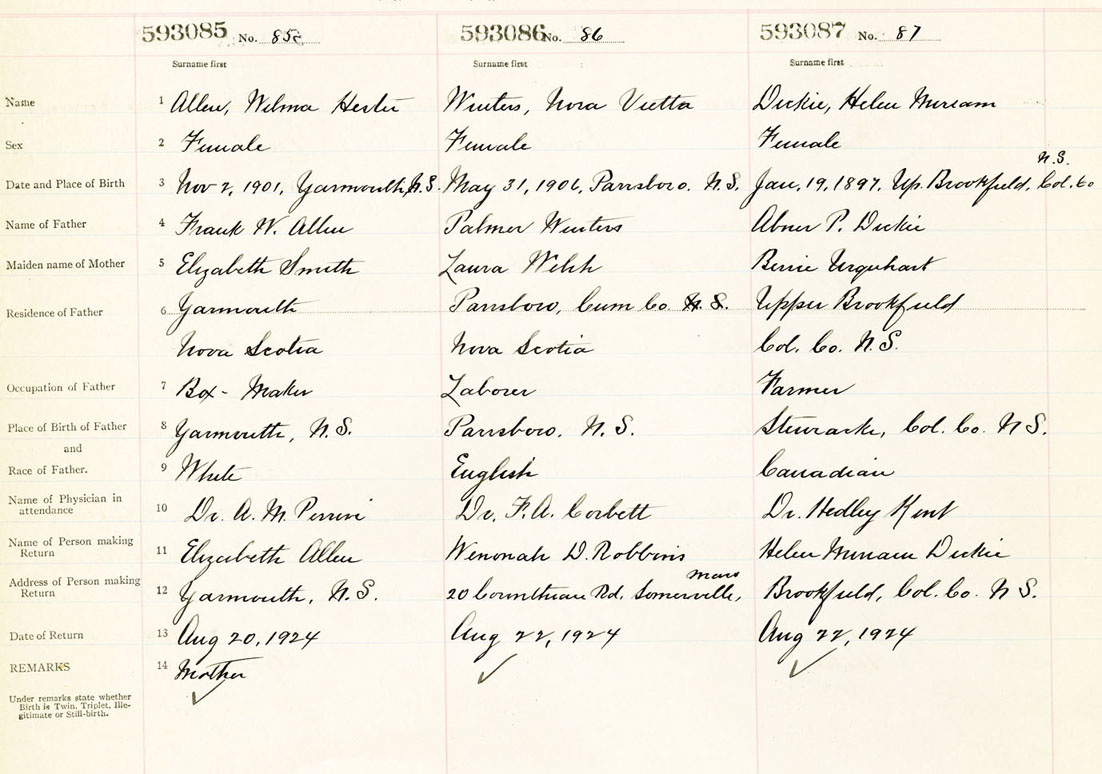 593085 No. 85 593086 No. 86 593087 No. 87
Surname first Surname first Surname first
Name 1 Allen, Wilma Hester Winters, Nora Vietta Dickie, Helen Miriam
Sex 2 Female Female Female
N.S.
Date and Place of Birth 3 Nov 2, 1901, Yarmouth, N.S. May 31, 1906, Parrsboro. N.S. Jan, 19, 1897, Up. Brookfield, Col. Co
Name of Father 4 Frank W. Allen Palmer Winters Abner P. Dickie
Maiden name of Mother 5 Elizabeth Smith Laura Welsh Urquhart
Residence of Father 6 Yarmouth Parrsboro, Cum Co. N.S. Upper Brookfield
Nova Scotia Nova Scotia Col. Co. N.S.
Occupation of Father 7 Box-Maker Laborer Farmer
Place of Birth of Father 8 Yarmouth, N.S. Parrsboro. N.S. Stewiacke, Col. Co. N S.
and
Race of Father. 9 White English Canadian
Name of Physician in attendance 10 Dr. A. M. Perrin Dr. F. A. Corbett Dr. Hedley Kent
Name of Person making Return 11 Elizabeth Allen Wenonah D. Robbins Helen Miriam Dickie
Mass
Address of Person making Return 12 Yarmouth, N.S. 20 Corinthian Rd. Somerville, Brookfield, Col. Co. N S.
Date of Return 13 Aug 20, 1924 Aug 22, 1924 Aug 22, 1924
REMARKS 14 Mother
Under remarks state whether
Birth is Twin, Triplet, Ille-
gitimate or Still-birth.